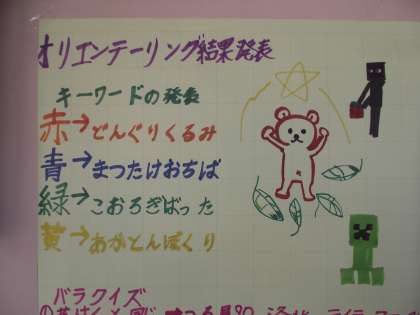 オリエンテーリング結果発表
キーワードの発表
赤→どんぐりくるみ
青→まつたけおちば
緑→こおろぎばった
黄→あかとんぼくり
バラクイズ